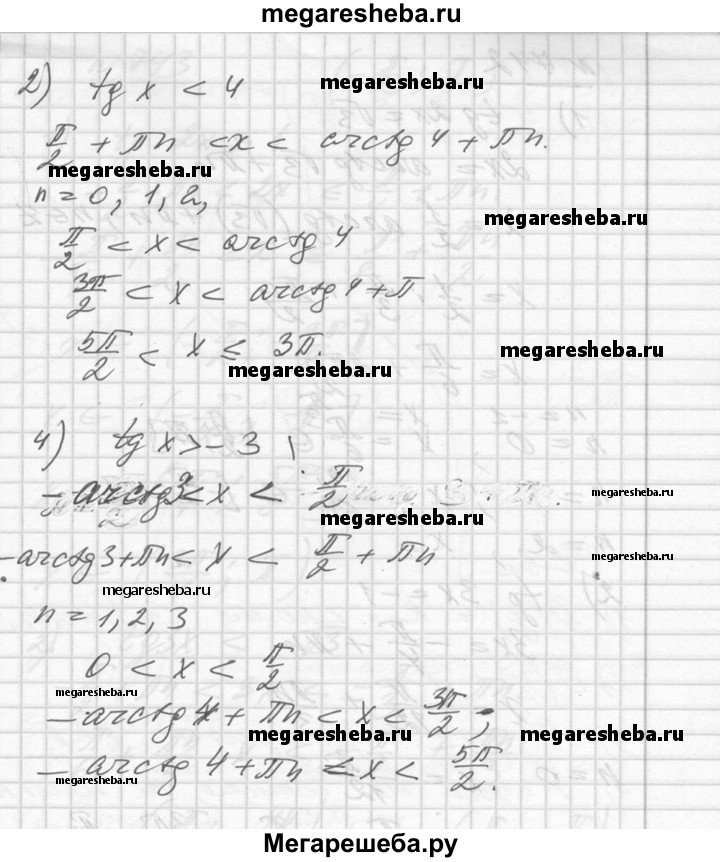 megaresheba.ru
2) tg x < 4
megaresheba.ru
π/2 + πn < x < arctg 4 + πn.
megaresheba.ru
n = 0, 1, 2,
megaresheba.ru
π/2 < x < arctg 4
3π/2 < x < arctg 4 + π
5π/2 < x ≤ 3π.
megaresheba.ru
megaresheba.ru
4) tg x > - 3
- arctg 3 < x < π/2
megaresheba.ru
megaresheba.ru
- arctg 3 + πn < x < π/2 + πn
megaresheba.ru
megaresheba.ru
n = 1, 2, 3
0 < x < π/2
megaresheba.ru
- arctg 4 + πn < x < 3π/2 ;
megaresheba.ru
megaresheba.ru
- arctg 4 + πn ≤ x < 5π/2.
megaresheba.ru
Мегарешеба.ру